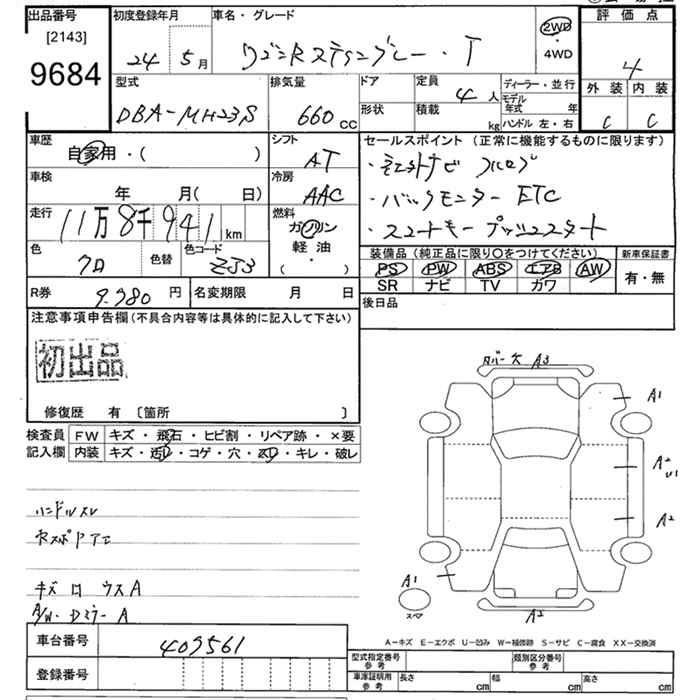 出品番号 初度登録年月 車名・グレード 評価点
[2143]
9684
24 5月 ワゴンRスティングレー・T 2WD・4WD 4
型式 排気量 ドア 定員 ディーラー・並行 外装 内装
DBA-MH23S 660cc 4人 モデル年式 年 C C
形状 積載 kg ハンドル 左・右
車歴 シフト セールスポイント (正常に機能するものに限ります)
自家用・( ) AT
・ナビ フルセグ
車検 冷房
年 月( 日) AAC ・バックモニター ETC
走行 燃料
11万8千941km ガソリン ・スマートキー プッシュスタート
軽油
( ・ )
色 色替 色コード 装備品(純正品に限り○をつけてください) 新車保証書
クロ ZJ3 PS PW ABS エアB AW 有・無
SR ナビ TV カワ
R券 9.980円 名変期限 月 日 後日品
注意事項申告欄(不具合内容等は具体的に記入して下さい)
初出品
修復歴 有 〔箇所 〕
検査員 FW キズ・飛石・ヒビ割・リペア跡・×要
記入欄 内装 キズ・汚レ・コゲ・穴・スレ・キレ・破レ
ハンドルスレ
キズ ロ ウスA
A/W・Dミラー A
A3
A1
A2
U1
A2
A1
スペア
A2
車台番号 409561
登録番号
A-キズ E-エクボ U-凹み W-補修跡 S-サビ C-腐食 XX-交換済
型式指定番号 参考 類別区分番号 参考
車庫証明用 参考 長さ cm 幅 cm 高さ cm